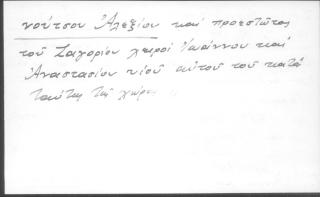 νούτσου Ἀλεξίου καὶ προεστῶτος
τοῦ Ζαγορίου χειρὶ Ἰωάννου καὶ
Ἀναστασίου υἱοῦ αὐτοῦ τοῦ κατὰ
ταύτης τῆς χώρας